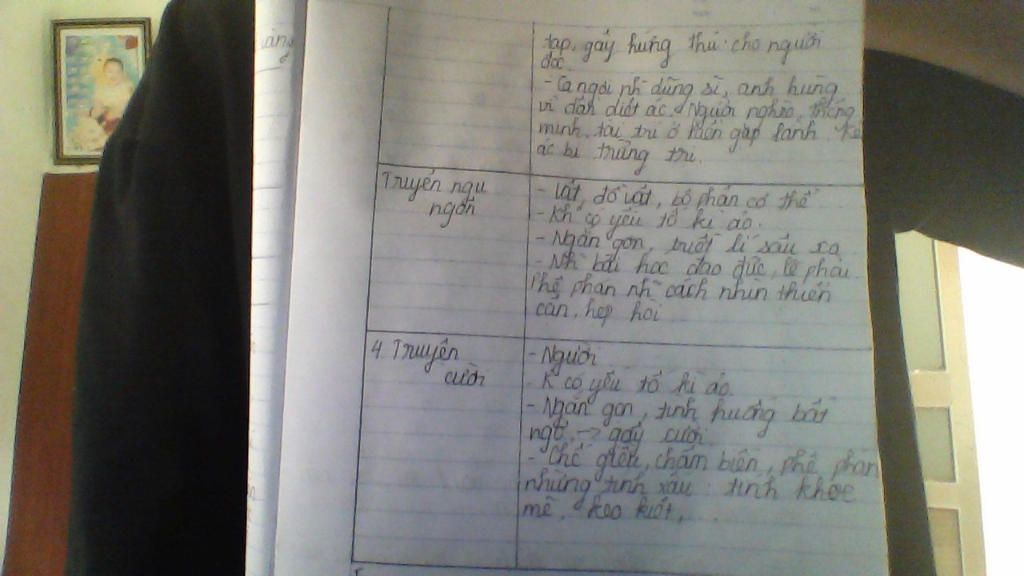 tạp, gây hứng thú cho người
đọc
- Ca ngợi nh~ dũng sĩ, anh hùng
vì dân diệt ác. Người nghèo, thông
minh, tài trí ở hiền gặp lành. Kẻ
ác bị trừng trị.
Truyện ngụ
ngôn
- Vật, đồ vật, bộ phận cơ thể
- Kh có yếu tố kì ảo.
- Ngắn gọn, triết lí sâu xa
- Nh~ bài học đạo đức, lẽ phải.
Phê phán nh~ cách nhìn thiển
cận, hẹp hòi
4. Truyện
cười
- Người
- K có yếu tố kì ảo.
- Ngắn gọn, tình huống bất
ngờ, -> gây cười.
- Chế giễu, châm biếm, phê phán
những tính xấu: tính khoe
mẽ, keo kiệt, ...